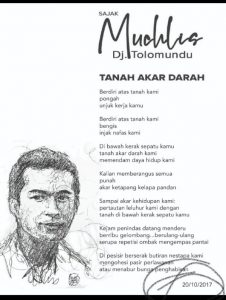 SAJAK
Muchlis
Dj. Tolomundu
TANAH AKAR DARAH
Berdiri atas tanah kami
pongah
unjuk kerja kamu
Berdiri atas tanah kami
bengis
injak nafas kami
Di bawah kerak sepatu kamu
tanah akar darah kami
memendam daya hidup kami
Kalian memberangus semua
punah
akar ketapang kelapa pandan
Sampai akar kehidupan kami:
pertautan leluhur kami dengan
tanah di bawah kerak sepatu kamu
Kejam penindas datang menderu
beribu gelombang...berulang-ulang
serupa repetisi ombak mengempas pantai
Di pesisir berserak butiran nestapa kami
mengohesi pasir perlawanan
atau menabur bunga penghabisan
20/10/2017